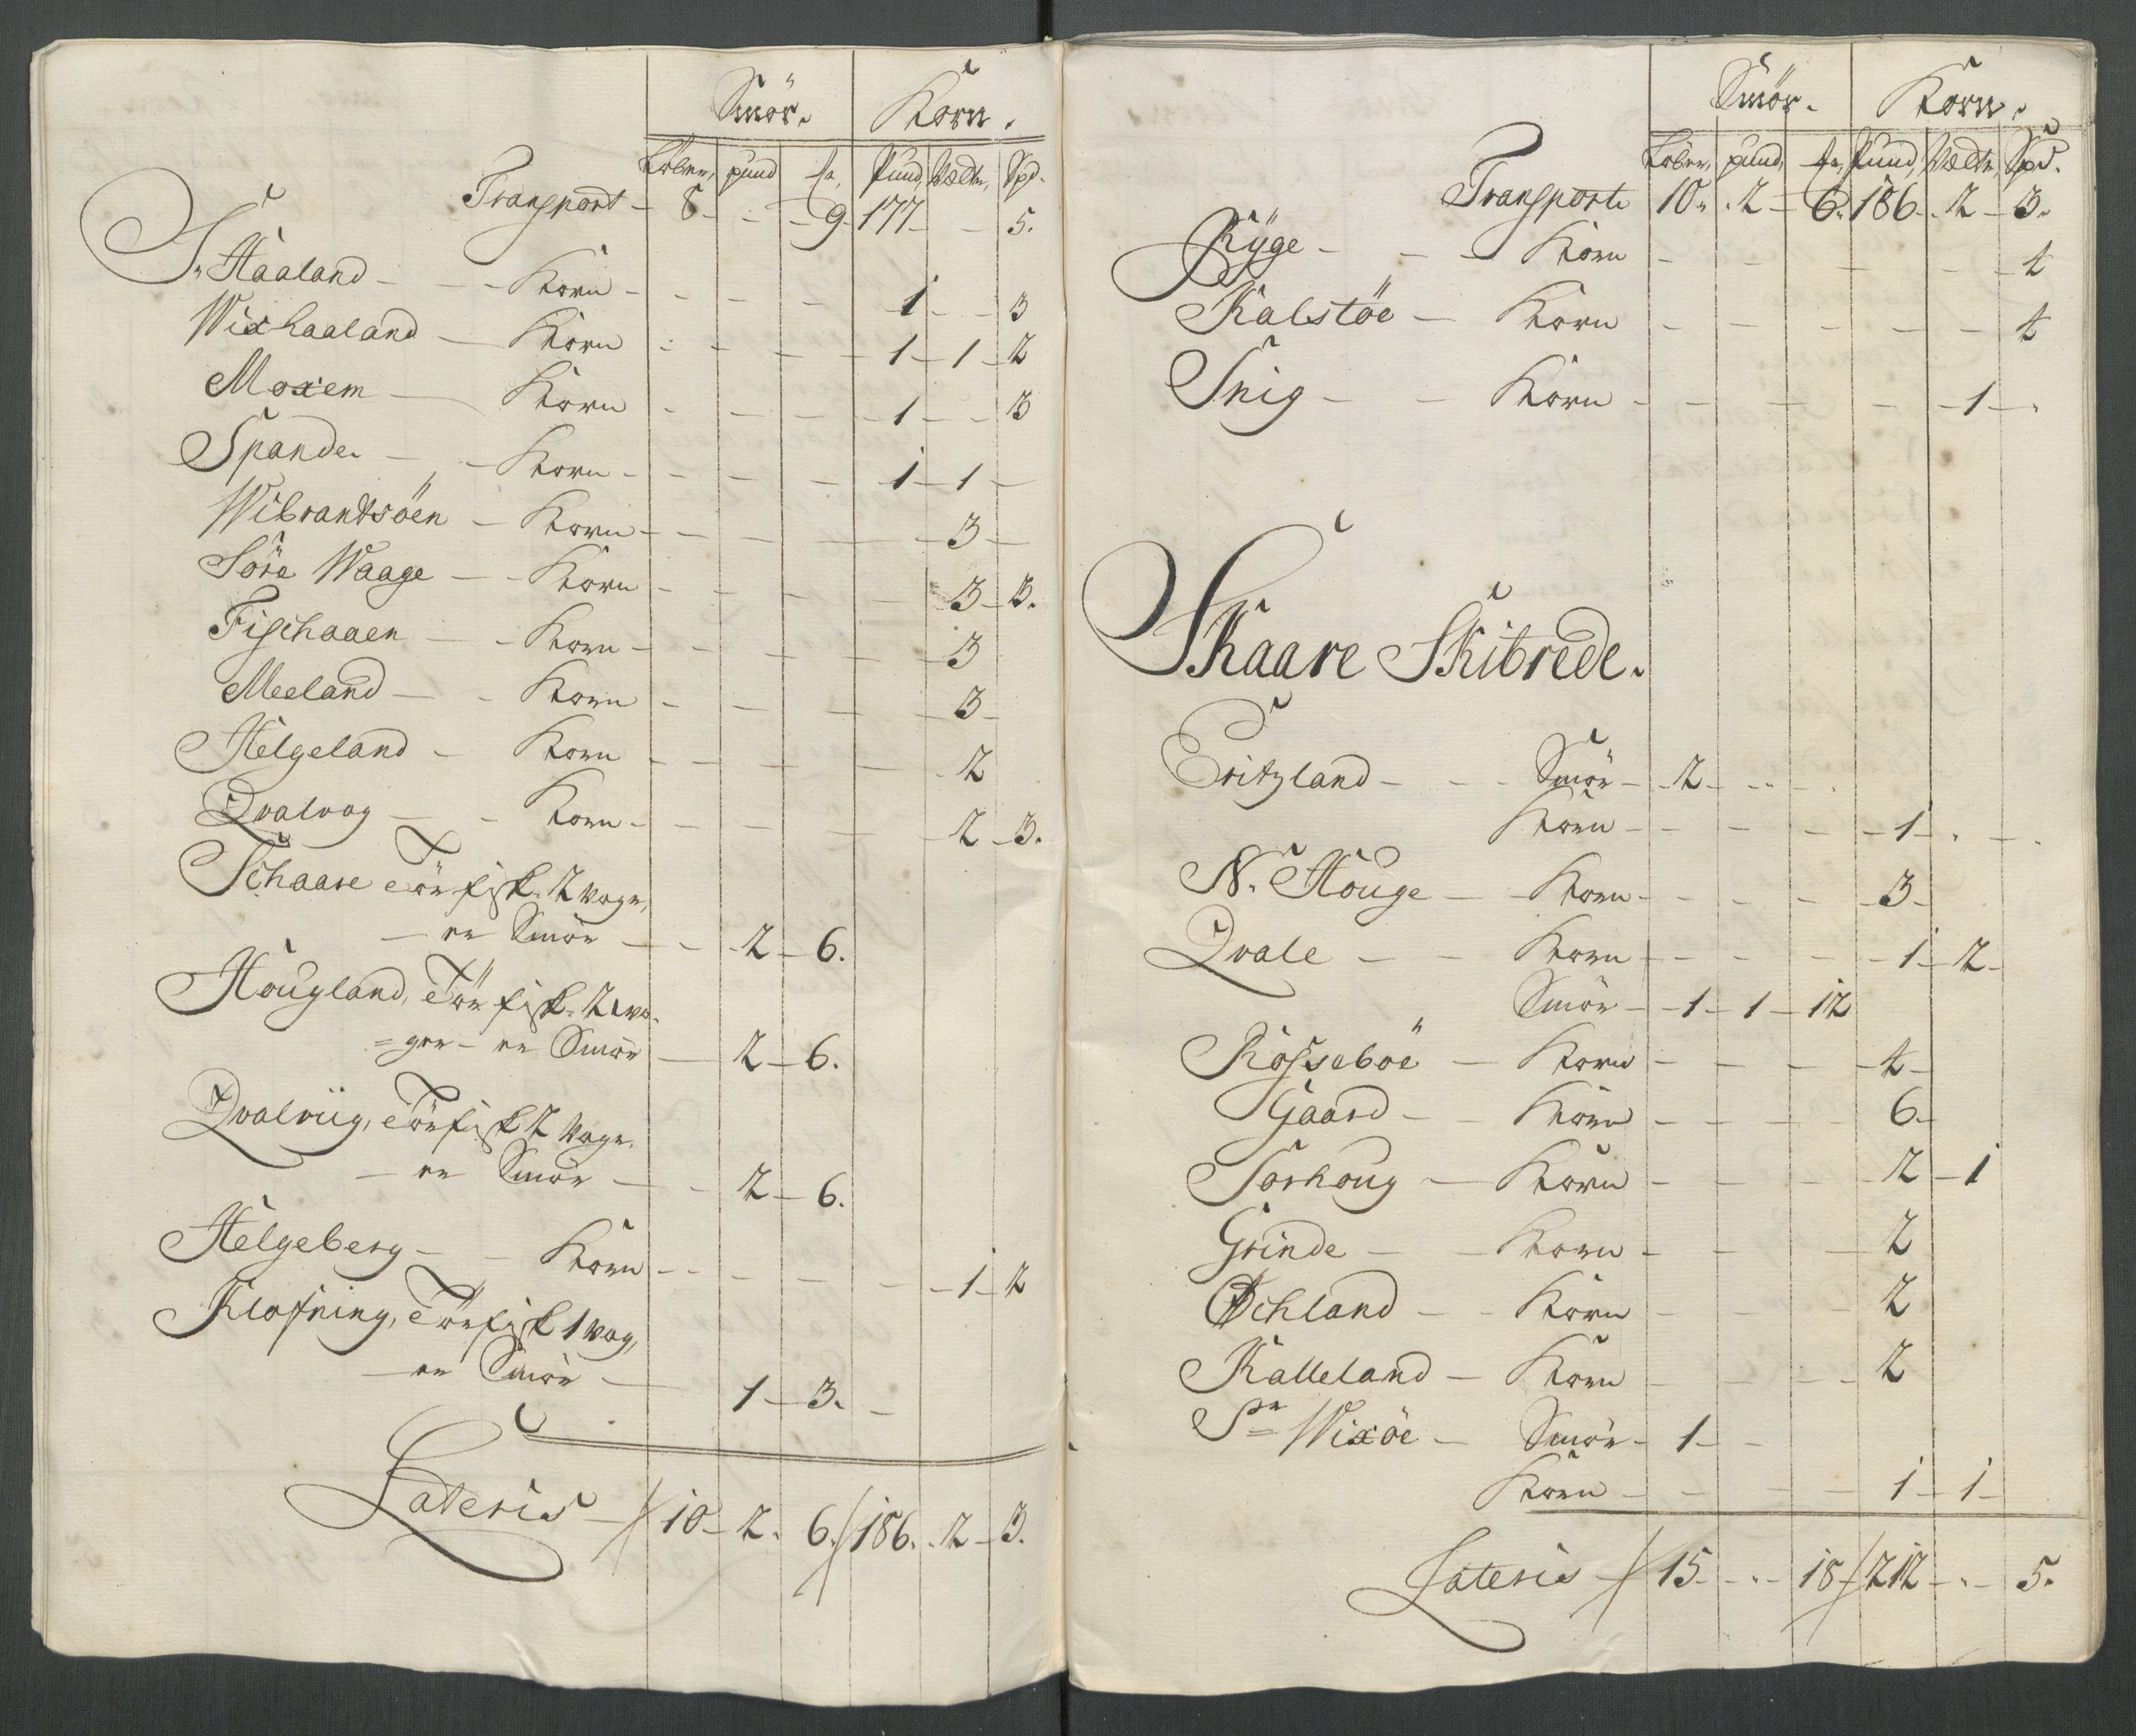 Smör. Korn.
Löber, pund, Pund, Wætte, Spd.
Transport - 8 - - 9 - 177 - - 5.
S. Haaland - - - Korn - - - - 1 - - 3
Wixhaaland - Korn - - - - 1 - 1 - 2
Moxem - Korn - - - - 1 - - 3
Spande. - - Korn - - - - 1 - 1 -
Wibrandtsöen - Korn - - - - - 3 -
Söre Waage - - Korn - - - - - 3 - 3.
Fischaaen - - Korn - - - - - 3
Meeland - - Korn - - - - - 3 -
Helgeland - Korn - - - - - 2
Qvalvog - - Korn - - - - - 2 - 3.
Schaare Tör fisk. 2 voger,
- er Smör - - 2 - 6.
Hougland, Tör fisk. 2 wo=
=ger - er Smör - 2 - 6.
Qvalviig, Tör fisk 2 Voger.
- er Smör - - 2 - 6.
Helgeberg - - Korn - - - - - 1 - 2
Klofning, Tör fisk 1 vog,
- er Smör - 1 - 3. -
Lateris - 10 - 2. 6. 186. - 2 - 3.
Smör. Korn.
Löber, pund, Pund, Wætte, Spd.
Transport 10. - 2 - 6. 186. - 2 - 3.
Ryge - - - Korn - - - - - 4
Kalstöe - Korn - - - - - 4
Snig - - Korn - - - - - 1 -
Skaare Skibrede.
Eritzland - - - Smör - 2 - - -
Korn - - - - 1 - -
N. Houge - - Korn - - - - 3 -
Qvale - - Korn - - - - 1 - 2 -
Smör - 1 - 1 - 12
Rosseboe - Korn - - - 4 -
Gaard - - Korn - - - - 6 -
Sorhoug - Korn - - - - 2 - 1
Grinde - - Korn - - - 2
Ochland - - Korn - - - 2
Kalleland - Korn - - - - 2
Sr Wixöe - Smör - 1 - -
Korn - - - - 1 - 1 -
Lateris - 15 - - - 18 - 212 - - - 5.